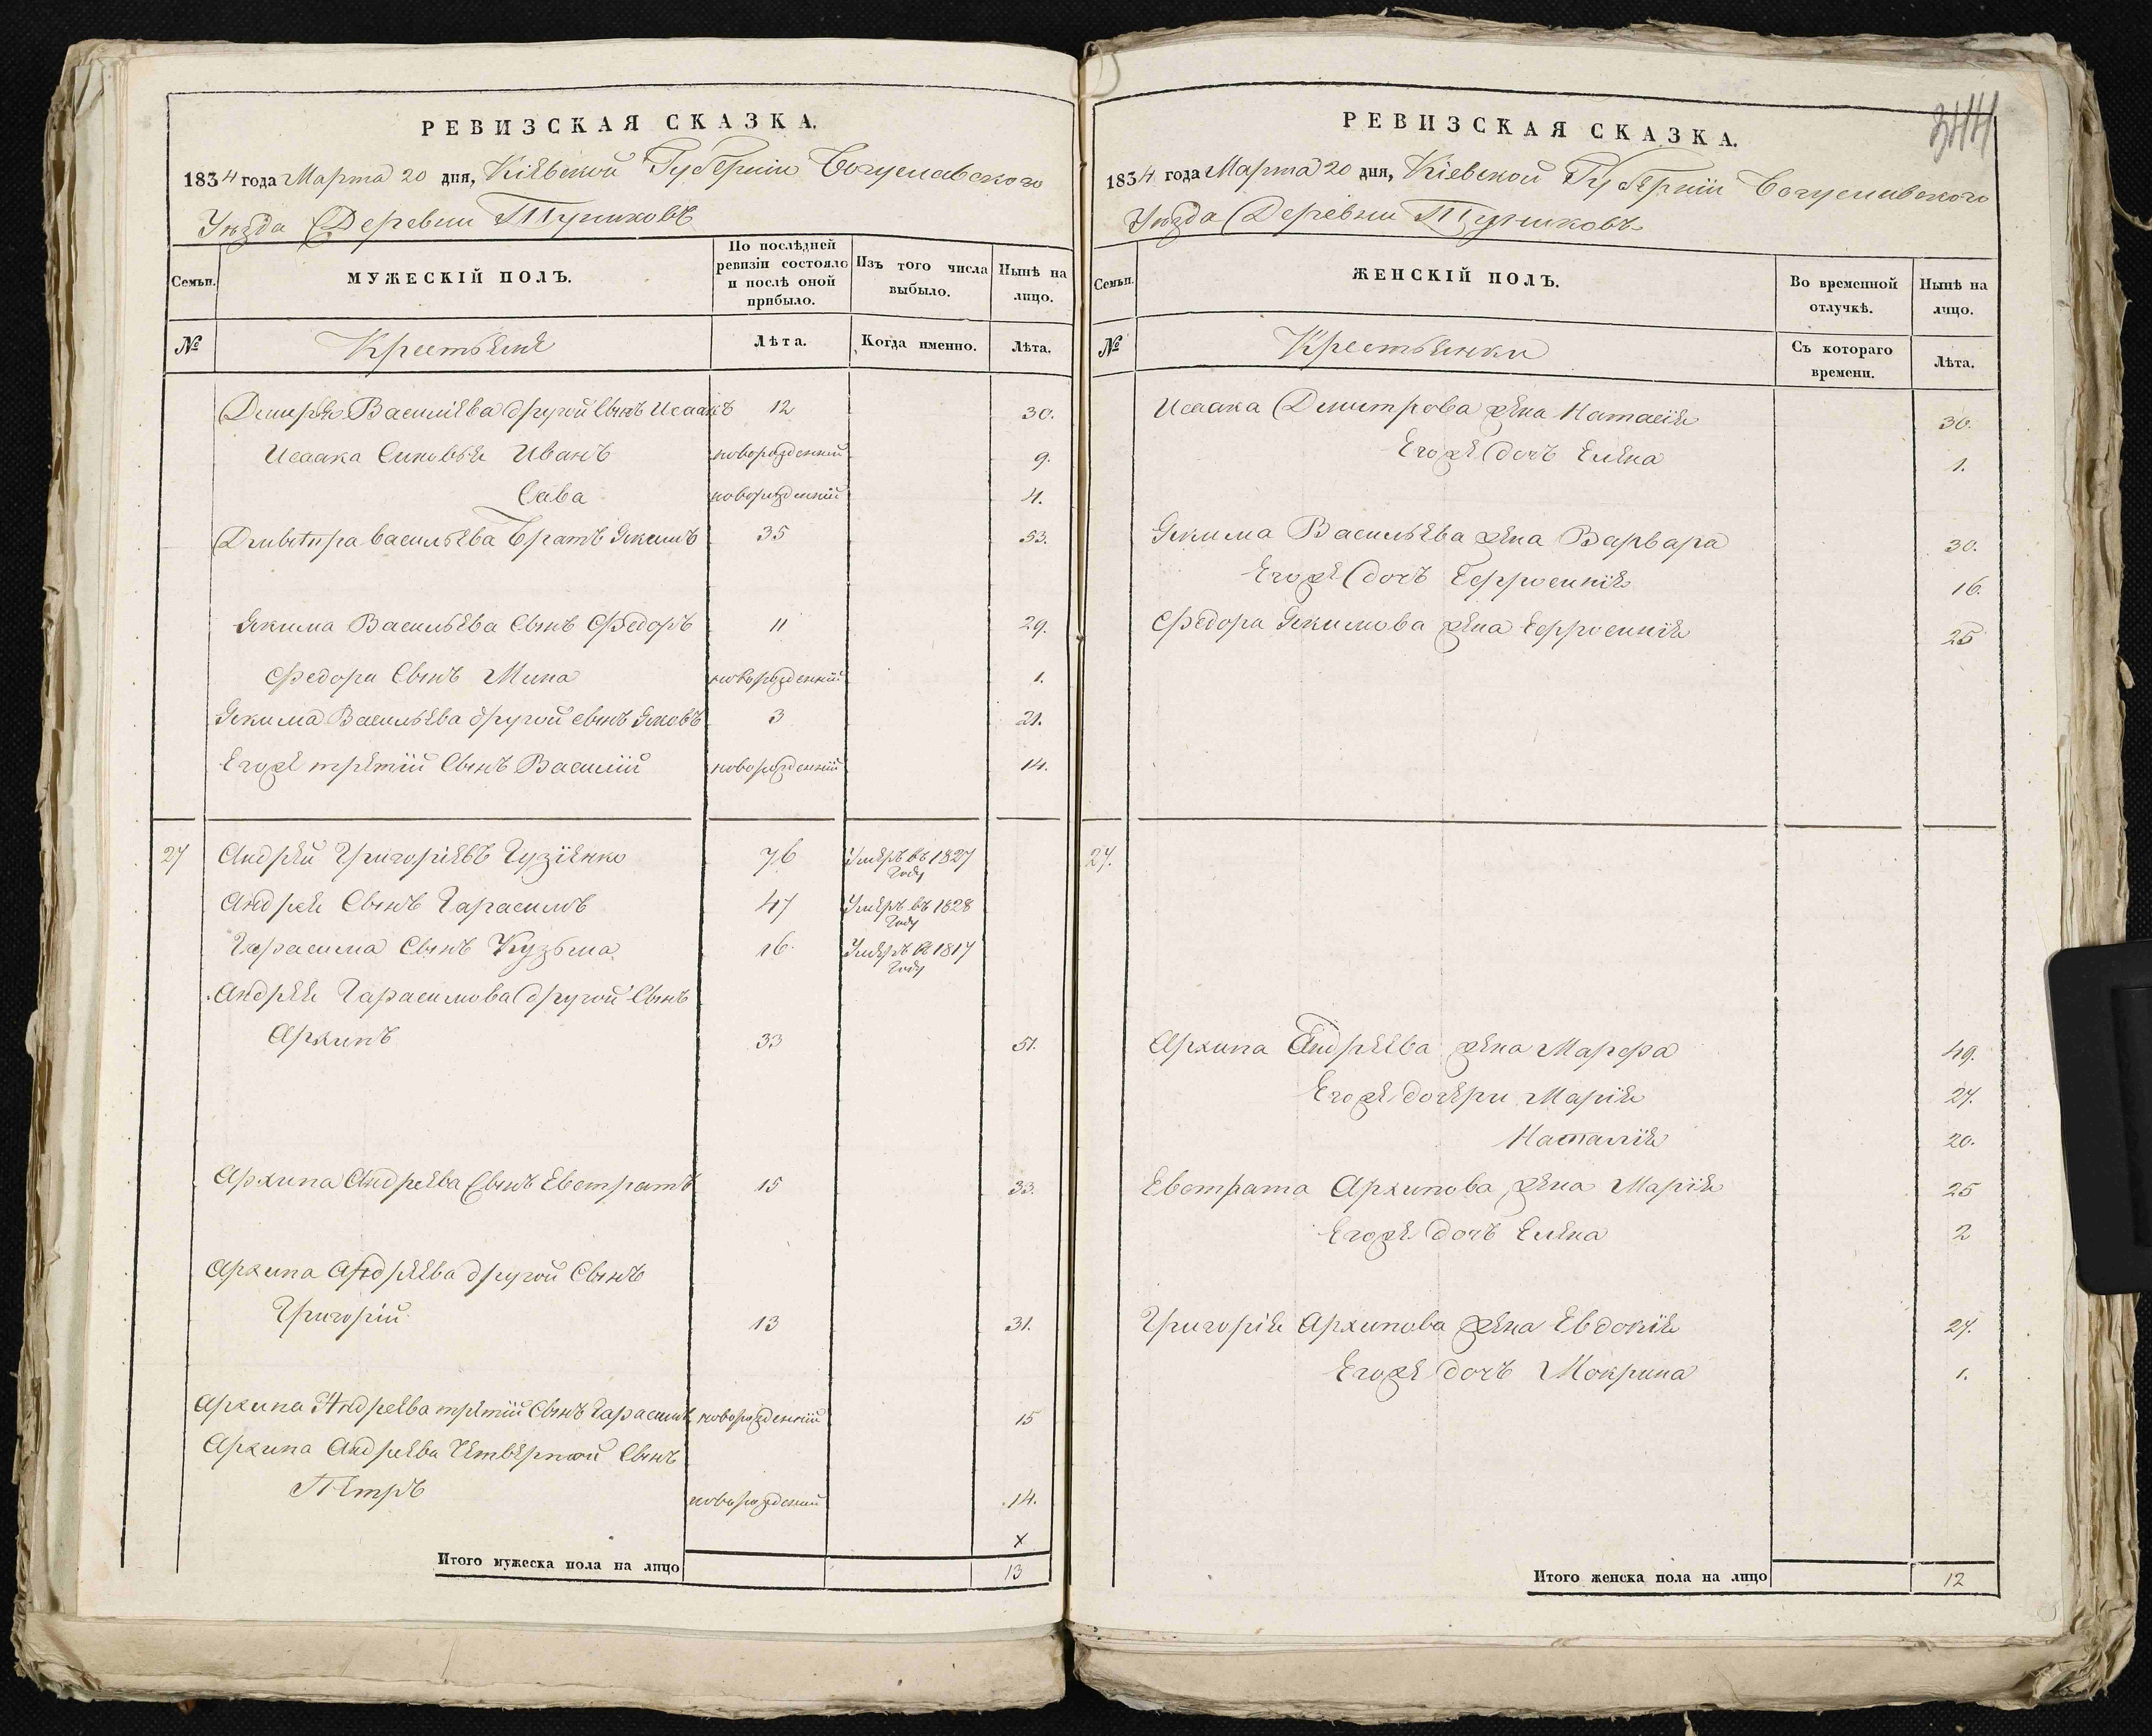 РЕВИЗСКАЯ СКАЗКА.
1834 года Марта 20 дня, Кіевской Губерніи Богуславского
Уезда Деревни Тупиковъ
Семьи.
МУЖЕСКІЙ ПОЛЪ.
По послѣдней ревизіи состояло и послѣ оной прибыло.
Изъ того числа выбыло.
Нынѣ на лицо.
№
Крестьяне
Лѣта.
Когда именно.
Лѣта.
Василіева другой Сынъ Исаакъ 12 30.
Исаака Синовья Иванъ новорожденній 9.
Сава новорожденній 4.
Васильева Братъ Якимъ 35 53.
Якима Васильева Сынъ Федоръ 11 29.
Федора Сынъ Мина новорожденній 1.
Якима Васильева другой сынъ Яковъ 3 21.
Егоже третій Сынъ Василій новорожденній 14.
27 Андрей Григоріевъ Гузіенко 76 Умеръ въ 1827 Году
Андрея Сынъ Гарасимъ 47 Умеръ въ 1828 Году
Гарасима Сынъ Кузьма 16. Умеръ в 1817 Году
Андрея Гарасимова другой Сынъ
Архипъ 33 51.
Архипа Андреева Сынъ Евстратъ 15 33.
Архипа Андреева другой Сынъ
Григорій 13 31.
Архипа Андреева третій Сынъ Гарасимъ новорожденній 15
Архипа Андреева Четвертой Сынъ
Петръ новорожденній 14.
х
Итого мужеска пола на лицо 13
344
РЕВИЗСКАЯ СКАЗКА.
1834 года Марта 20 дня, Кіевской Губерніи Богуславского
Уезда Деревни Тупиковъ
Семьи.
ЖЕНСКІЙ ПОЛЪ.
Во временной отлучкѣ.
Нынѣ на лицо.
№
Крестьянки
Съ котораго времени.
Лѣта.
Исаака Дмитрова жена Натасія 30.
Егоже дочъ Елена 1.
Якима Васильева жена Варвара 30.
Егоже дочъ Ефросинія 16.
Федора Якимова жена Ефросинія 25
27.
Архипа Андреева жена Марфа 49.
Егоже дочери Марія 27.
Наталія 20.
Евстрата Архипова жена Марія 25
Егоже дочъ Елена 2
Григорія Архипова жена Евдокія 27.
Егоже дочъ Мокрина 1.
Итого женска пола на лицо 12